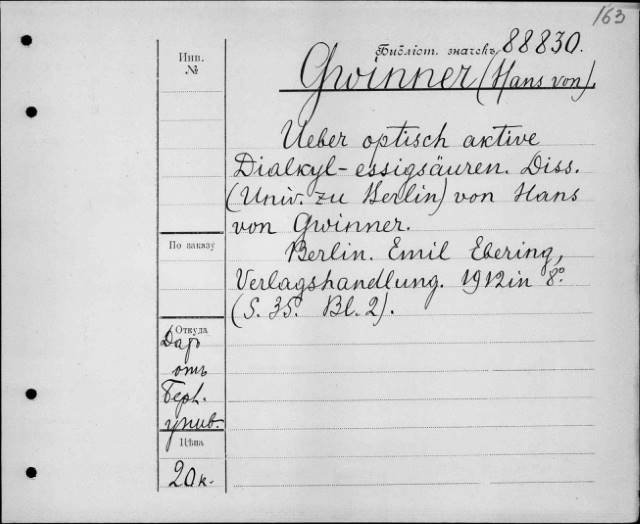 163
Библіот. значекъ 88830.
Инв.
№
Gwinner (Hans von).
Ueber optisch aktive
Dialkyl-essigsäuren. Diss.
(Univ. zu Berlin) von Hans
von Gwinner.
По заказу
Berlin. Emil Ebering,
Verlagshandlung. 1912 in 8°.
(S. 35. Bl. 2).
Откуда
Даръ
отъ
Берл.
унив.
Цѣна
20 к.